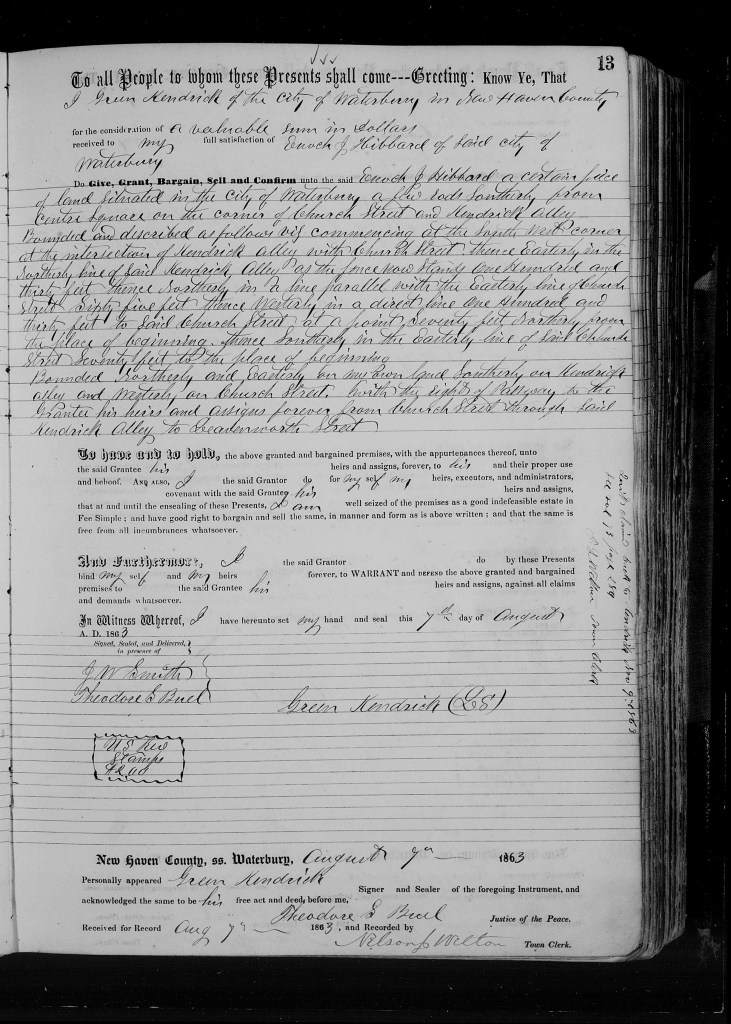 13
To all People to whom these Presents shall come---Greeting: Know Ye, That
I Green Kendrick of the City of Waterbury in New Haven County
for the consideration of a valuable sum in Dollars
received to my full satisfaction of Enoch J Hibbard of said city of
Waterbury
Do Give, Grant, Bargain, Sell and Confirm unto the said Enoch J Hibbard a certain piece
of land situated in the City of Waterbury a few rods Southerly from
Centre Square on the corner of Church Street and Kendrick Alley
Bounded and described as follows viz commencing at the South West corner
at the intersection of Kendrick Alley with Church Street thence Easterly in the
Northerly line of said Kendrick Alley as the fence now stands One Hundred and
thirty feet thence Northerly in a line parallel with the Easterly line of Church
Street Sixty five feet thence Westerly in a direct line One Hundred and
thirty feet to said Church Street at a point Seventy feet Northerly from
the place of beginning thence Southerly in the Easterly line of said Church
Street Seventy feet to the place of beginning
Bounded Northerly and Easterly on my own land Southerly on Kendrick
alley and Westerly on Church Street. with the right of Passway to the
Grantee his heirs and assigns forever from Church Street through said
Kendrick Alley to Leavenworth Street
To have and to hold, the above granted and bargained premises, with the appurtenances thereof, unto
the said Grantee his heirs and assigns, forever, to his and their proper use
and behoof. And also, I the said Grantor do for my self my heirs, executors, and administrators,
covenant with the said Grantee his heirs and assigns,
that at and until the ensealing of these Presents, I am well seized of the premises as a good indefeasible estate in
Fee Simple; and have good right to bargain and sell the same, in manner and form as is above written; and that the same is
free from all incumbrances whatsoever.
And Furthermore, I the said Grantor do by these Presents
bind my self and my heirs forever, to WARRANT and DEFEND the above granted and bargained
premises to the said Grantee his heirs and assigns, against all claims
and demands whatsoever.
In Witness Whereof, I have hereunto set my hand and seal this 7th day of August
A. D. 1863
Signed, Sealed, and Delivered,
in presence of
J W Smith
Theodore S Buel
Green Kendrick (LS)
U S Rev
Stamps
$2.00
New Haven County, ss. Waterbury, August 7th 1863
Personally appeared Green Kendrick
Signer and Sealer of the foregoing Instrument, and
acknowledged the same to be his free act and deed, before me,
Theodore S Buel Justice of the Peace.
Received for Record Aug 7th 1863, and Recorded by
Nelson J Welton Town Clerk.
Quit Claim Deed to Kendrick Nov 9 1863
See vol 73 page 289
N J Welton Town Clerk